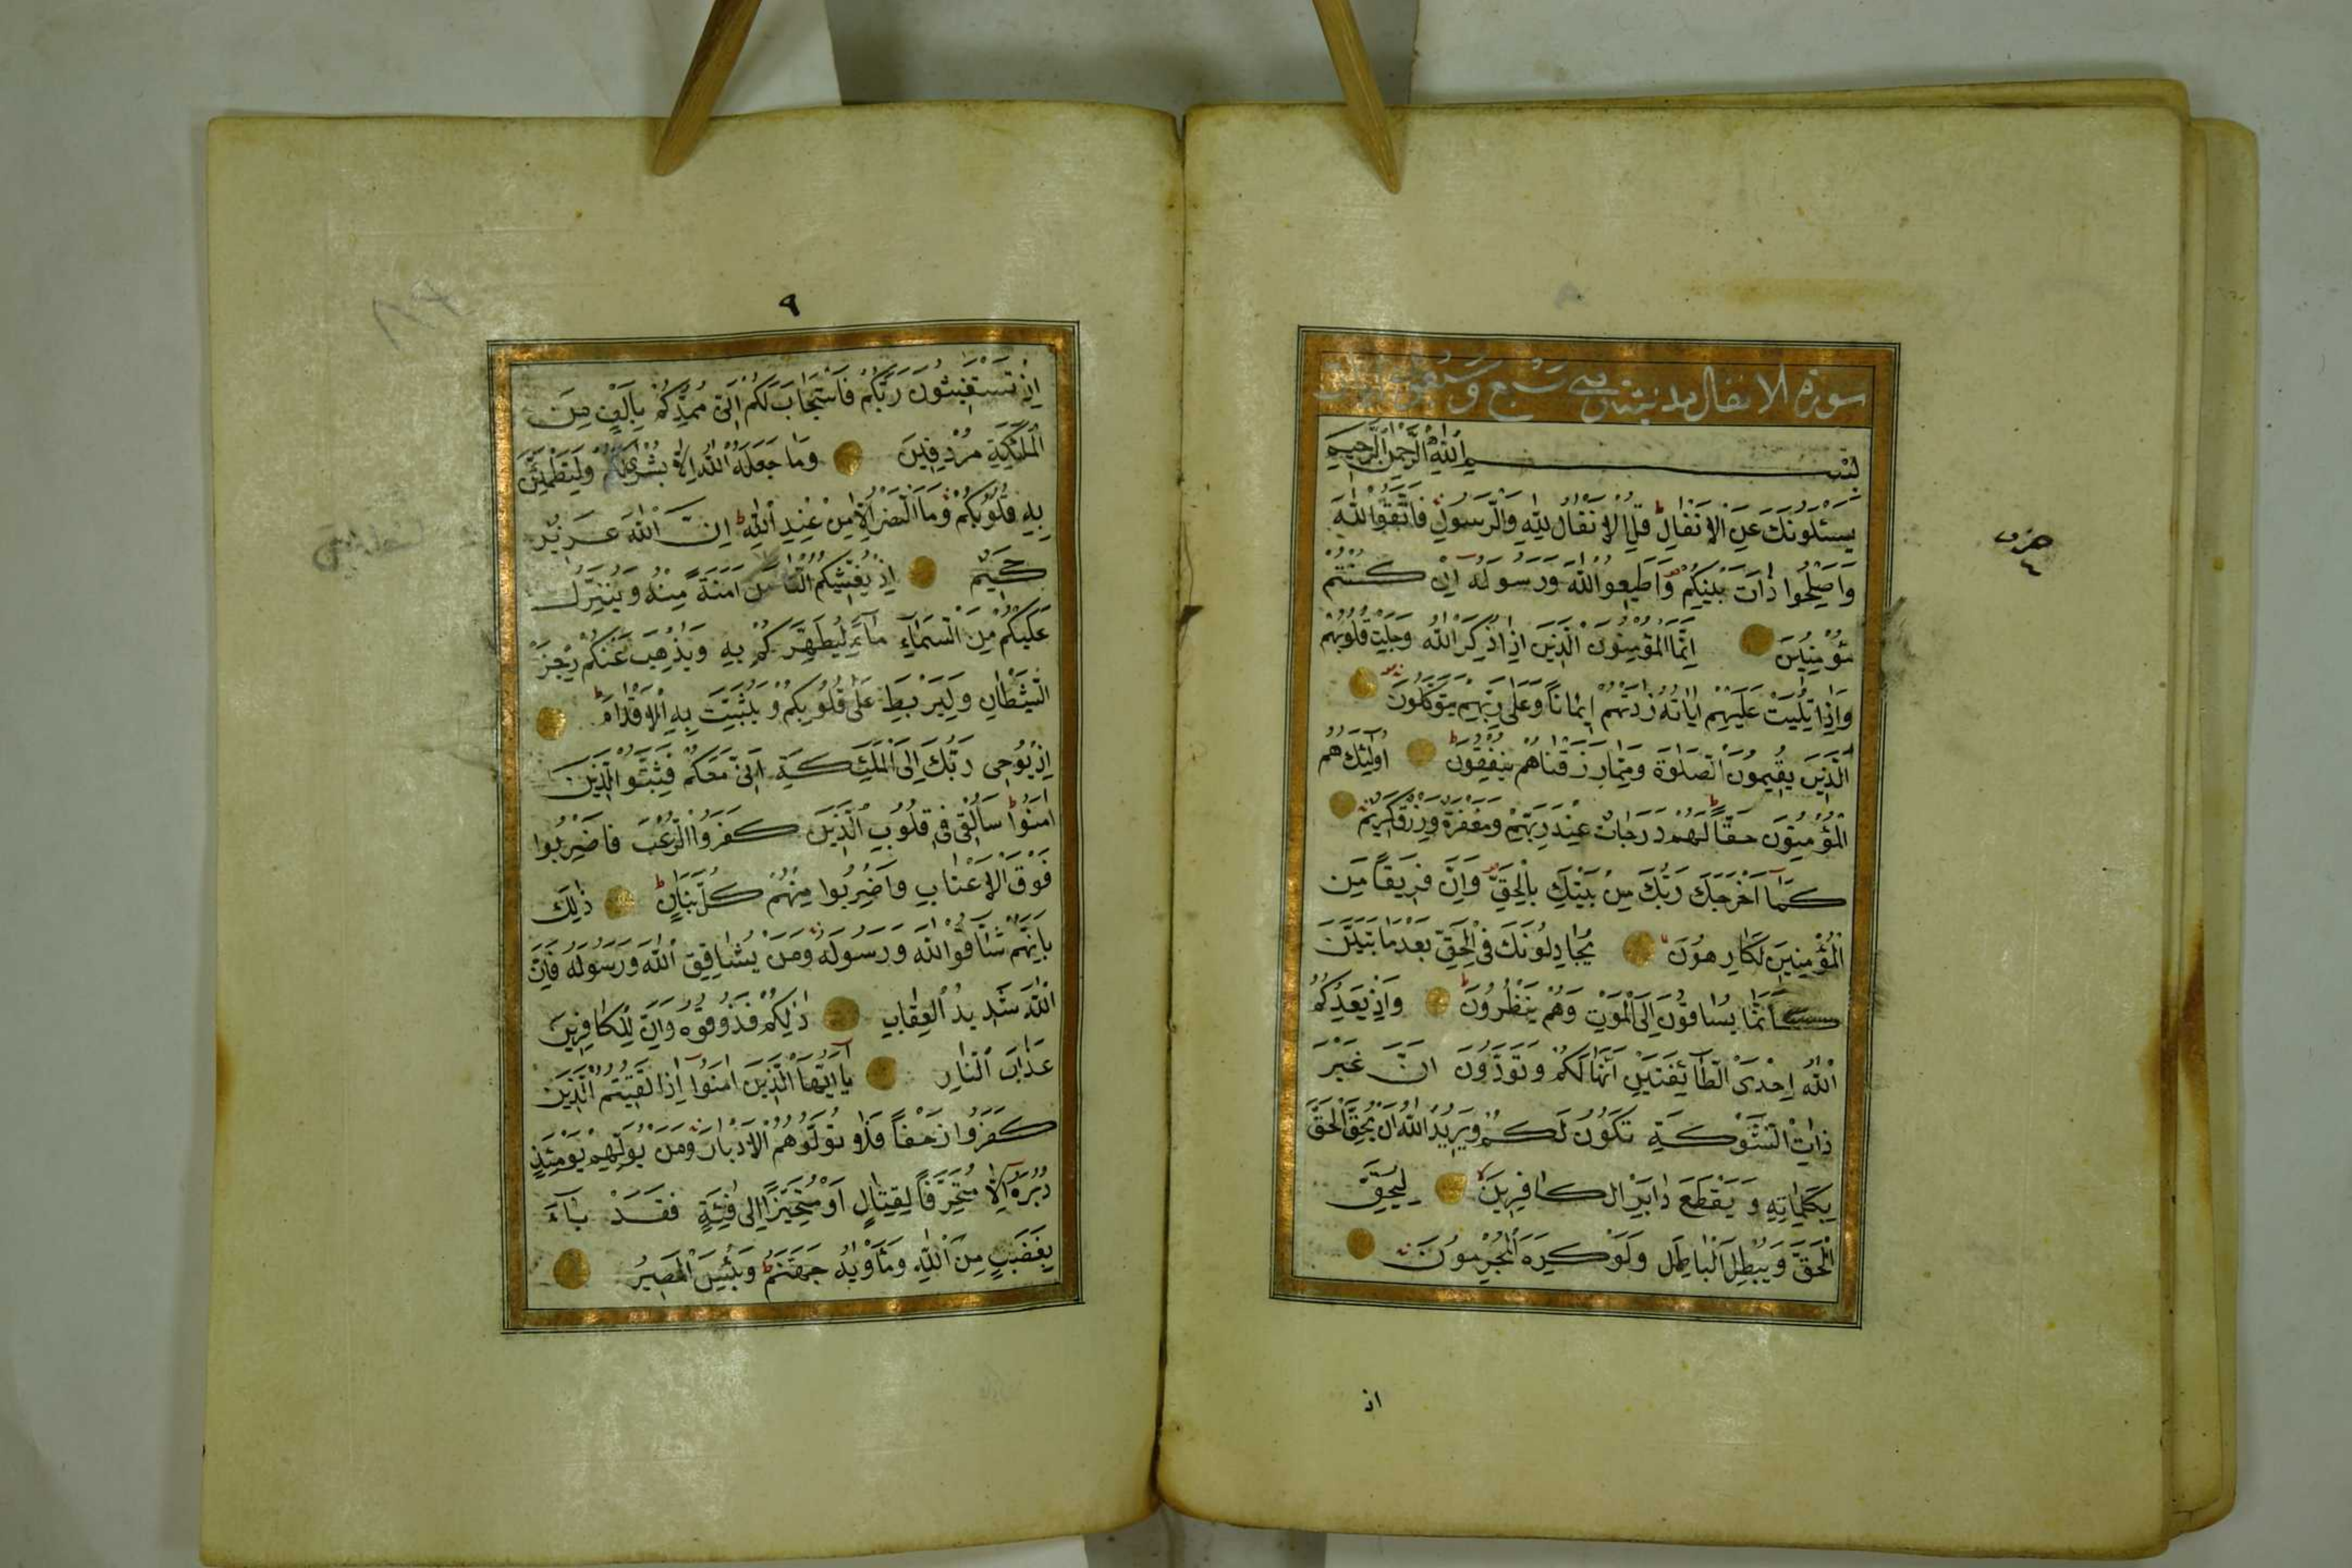 سورة الانفال مدنية وهي سبع وسبعون
بِسْمِ اللّٰهِ الرَّحْمٰنِ الرَّحِيمِ
يَسْئَلُونَكَ عَنِ الْاَنْفَالِ قُلِ الْاَنْفَالُ لِلّٰهِ وَالرَّسُولِ فَاتَّقُوا اللّٰهَ
وَاَصْلِحُوا ذَاتَ بَيْنِكُمْ وَاَطِيعُوا اللّٰهَ وَرَسُولَهُ اِنْ كُنْتُمْ
مُؤْمِنِينَ اِنَّمَا الْمُؤْمِنُونَ الَّذِينَ اِذَا ذُكِرَ اللّٰهُ وَجِلَتْ قُلُوبُهُمْ
وَاِذَا تُلِيَتْ عَلَيْهِمْ اٰيَاتُهُ زَادَتْهُمْ اِيْمَانًا وَعَلٰى رَبِّهِمْ يَتَوَكَّلُونَ
اَلَّذِينَ يُقِيمُونَ الصَّلٰوةَ وَمِمَّا رَزَقْنَاهُمْ يُنْفِقُونَ اُولٰئِكَ هُمُ
الْمُؤْمِنُونَ حَقًّا لَهُمْ دَرَجَاتٌ عِنْدَ رَبِّهِمْ وَمَغْفِرَةٌ وَرِزْقٌ كَرِيمٌ
كَمَا اَخْرَجَكَ رَبُّكَ مِنْ بَيْتِكَ بِالْحَقِّ وَاِنَّ فَرِيقًا مِنَ
الْمُؤْمِنِينَ لَكَارِهُونَ يُجَادِلُونَكَ فِي الْحَقِّ بَعْدَ مَا تَبَيَّنَ
كَاَنَّمَا يُسَاقُونَ اِلَى الْمَوْتِ وَهُمْ يَنْظُرُونَ وَاِذْ يَعِدُكُمُ
اللّٰهُ اِحْدَى الطَّائِفَتَيْنِ اَنَّهَا لَكُمْ وَتَوَدُّونَ اَنَّ غَيْرَ
ذَاتِ الشَّوْكَةِ تَكُونُ لَكُمْ وَيُرِيدُ اللّٰهُ اَنْ يُحِقَّ الْحَقَّ
بِكَلِمَاتِهِ وَيَقْطَعَ دَابِرَ الْكَافِرِينَ لِيُحِقَّ
الْحَقَّ وَيُبْطِلَ الْبَاطِلَ وَلَوْ كَرِهَ الْمُجْرِمُونَ
حزب
٤
اذ
٩
اِذْ تَسْتَغِيثُونَ رَبَّكُمْ فَاسْتَجَابَ لَكُمْ اَنِّي مُمِدُّكُمْ بِاَلْفٍ مِنَ
الْمَلٰئِكَةِ مُرْدِفِينَ وَمَا جَعَلَهُ اللّٰهُ اِلَّا بُشْرٰى لَكُمْ وَلِتَطْمَئِنَّ
بِهِ قُلُوبُكُمْ وَمَا النَّصْرُ اِلَّا مِنْ عِنْدِ اللّٰهِ اِنَّ اللّٰهَ عَزِيزٌ
حَكِيمٌ اِذْ يُغَشِّيكُمُ النُّعَاسَ اَمَنَةً مِنْهُ وَيُنَزِّلُ
عَلَيْكُمْ مِنَ السَّمَاءِ مَاءً لِيُطَهِّرَكُمْ بِهِ وَيُذْهِبَ عَنْكُمْ رِجْزَ
الشَّيْطَانِ وَلِيَرْبِطَ عَلٰى قُلُوبِكُمْ وَيُثَبِّتَ بِهِ الْاَقْدَامَ
اِذْ يُوحِي رَبُّكَ اِلَى الْمَلٰئِكَةِ اَنِّي مَعَكُمْ فَثَبِّتُوا الَّذِينَ
اٰمَنُوا سَاُلْقِي فِي قُلُوبِ الَّذِينَ كَفَرُوا الرُّعْبَ فَاضْرِبُوا
فَوْقَ الْاَعْنَاقِ وَاضْرِبُوا مِنْهُمْ كُلَّ بَنَانٍ ذٰلِكَ
بِاَنَّهُمْ شَاقُّوا اللّٰهَ وَرَسُولَهُ وَمَنْ يُشَاقِقِ اللّٰهَ وَرَسُولَهُ فَاِنَّ
اللّٰهَ شَدِيدُ الْعِقَابِ ذٰلِكُمْ فَذُوقُوهُ وَاَنَّ لِلْكَافِرِينَ
عَذَابَ النَّارِ يَا اَيُّهَا الَّذِينَ اٰمَنُوا اِذَا لَقِيتُمُ الَّذِينَ
كَفَرُوا زَحْفًا فَلَا تُوَلُّوهُمُ الْاَدْبَارَ وَمَنْ يُوَلِّهِمْ يَوْمَئِذٍ
دُبُرَهُ اِلَّا مُتَحَرِّفًا لِقِتَالٍ اَوْ مُتَحَيِّزًا اِلٰى فِئَةٍ فَقَدْ بَاءَ
بِغَضَبٍ مِنَ اللّٰهِ وَمَاْوٰيهُ جَهَنَّمُ وَبِئْسَ الْمَصِيرُ